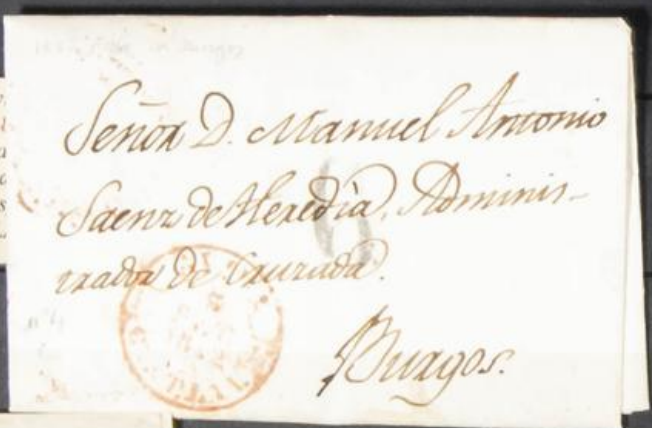 Señor D. Manuel Antonio
Saenz de Heredia, Adminis-
trador de Cruzada.
6
Burgos.